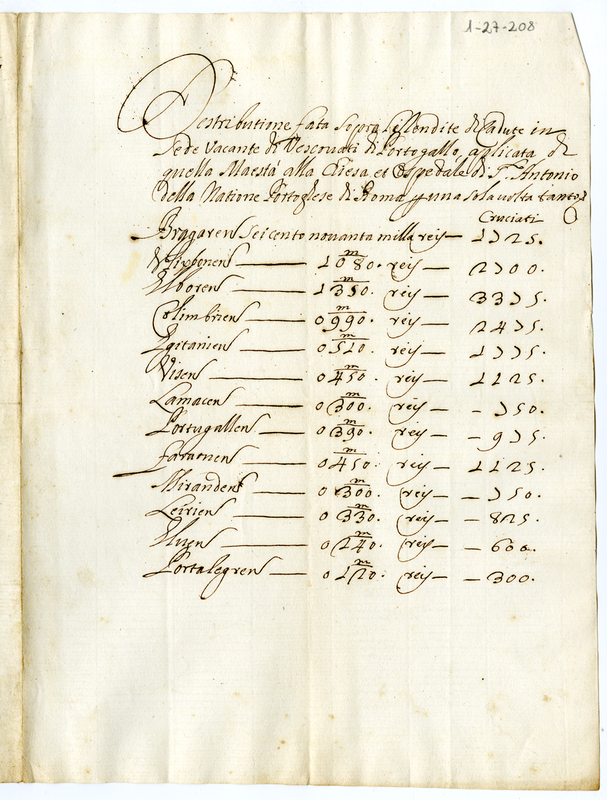 1-27-208
Destributione fata sopra l'Rendite di Cadute in
Sede vacante di Vescovati di Portogallo, aplicata di
quella Maestà alla Chiesa et Ospedale di S. Antonio
della Natione Portoghese di Roma una sola volta tanto
Cruciati
Bragaren Seicento novanta milla reis — 1725.
Ulixbonen — 1080. m reis — 2700.
Elboren — 1350. m reis — 3375.
Colimbrien — 0990. m reis — 2475.
Egitanien — 0510. m reis — 1775.
Visen — 0450. m reis — 1125.
Lamacen — 0300. m reis — 750.
Portugallen — 0390. m reis — 975.
Faraonen — 0450. m reis — 1125.
Miranden — 0300. m reis — 750.
Leirien — 0330. m reis — 825.
Elven — 0240. m reis — 600.
Portalegren — 0120. m reis — 300.